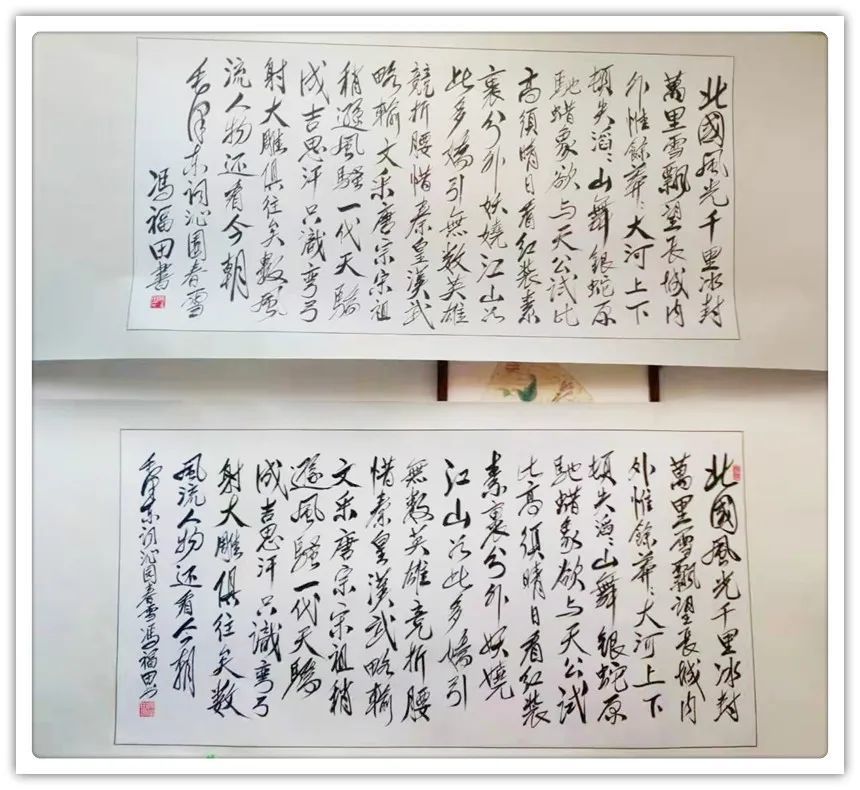 北國風光千里冰封
萬里雪飄望長城内
外惟餘莽々大河上下
頓失滔々山舞銀蛇原
馳蜡象欲与天公試比
高須晴日看紅装素
裹分外妖嬈江山如
此多嬌引無數英雄
競折腰惜秦皇漢武
略輸文采唐宗宋祖
稍遜風騷一代天驕
成吉思汗只識彎弓
射大雕俱往矣數風
流人物还看今朝
毛澤东詞沁園春雪
馮福田書
北國風光千里冰封
萬里雪飄望長城内
外惟餘莽々大河上下
頓失滔々山舞銀蛇原
馳蜡象欲与天公試
比高須晴日看紅装
素裹分外妖嬈
江山如此多嬌引
無數英雄竞折腰
惜秦皇漢武略輸
文采唐宗宋祖稍
遜風騷一代天驕
成吉思汗只識彎弓
射大雕俱往矣數
風流人物还看今朝
毛澤东词沁园春雪馮福田书